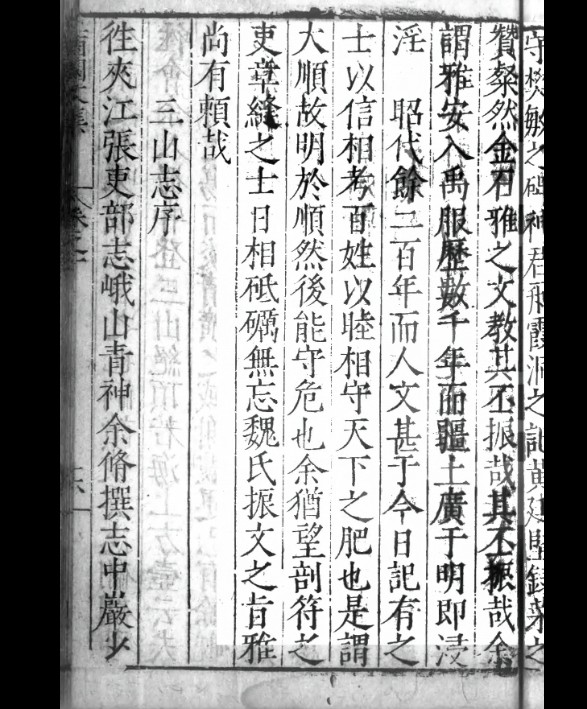 守樊敏之碑神君舠霞洞之記黃廷堅錄菜之
贊粲然金石雅之文教其丕振哉其丕振哉余
謂雅安入禹服歷數千年而疆土廣于明即浸
淫　昭代餘二百年而人文甚于今日記有之
士以信相考百姓以睦相守天下之肥也是謂
大順故明於順然後能守危也余猶望剖符之
吏章縫之士日相砥礪無忘魏氏振文之旨雅
尚有賴哉
三山志序
徃夾江張吏部志峨山青神余脩撰志中巖少